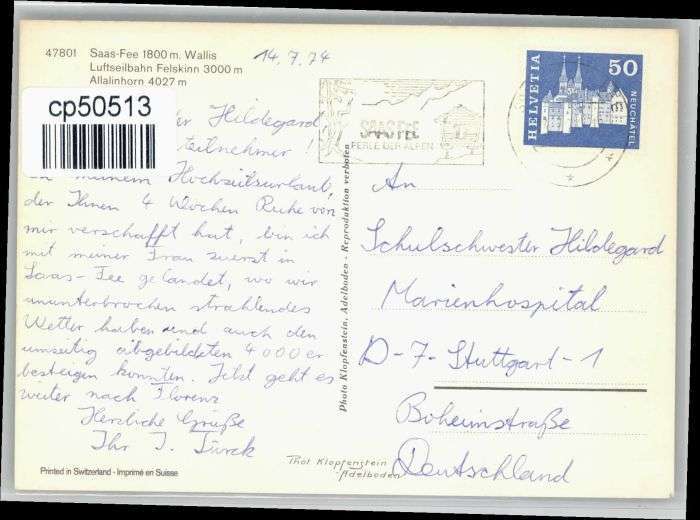 47801 Saas-Fee 1800 m. Wallis
Luftseilbahn Felskinn 3000 m
Allalinhorn 4027 m
14.7.74
cp50513
Hildegard
teilnehmer!
meinem Hochzeitsurlaub,
der Ihnen 4 Wochen Ruhe von
mir verschafft hat, bin ich
mit meiner Frau zuerst in
Saas-Fee gelandet, wo wir
ununterbrochen strahlendes
Wetter haben und auch den
umseitig abgebildeten 4000er
besteigen konnten. Jetzt geht es
weiter nach Florenz
Herzliche Grüße
Ihr J. Türck
Printed in Switzerland - Imprimé en Suisse
Photo Klopfenstein, Adelboden - Reproduktion verboten
SAAS FEE
PERLE DER ALPEN
HELVETIA
50
NEUCHÂTEL
An
Schulschwester Hildegard
Marienhospital
D-7-Stuttgart-1
Böheimstraße
Deutschland
Phot Klopfenstein
Adelboden